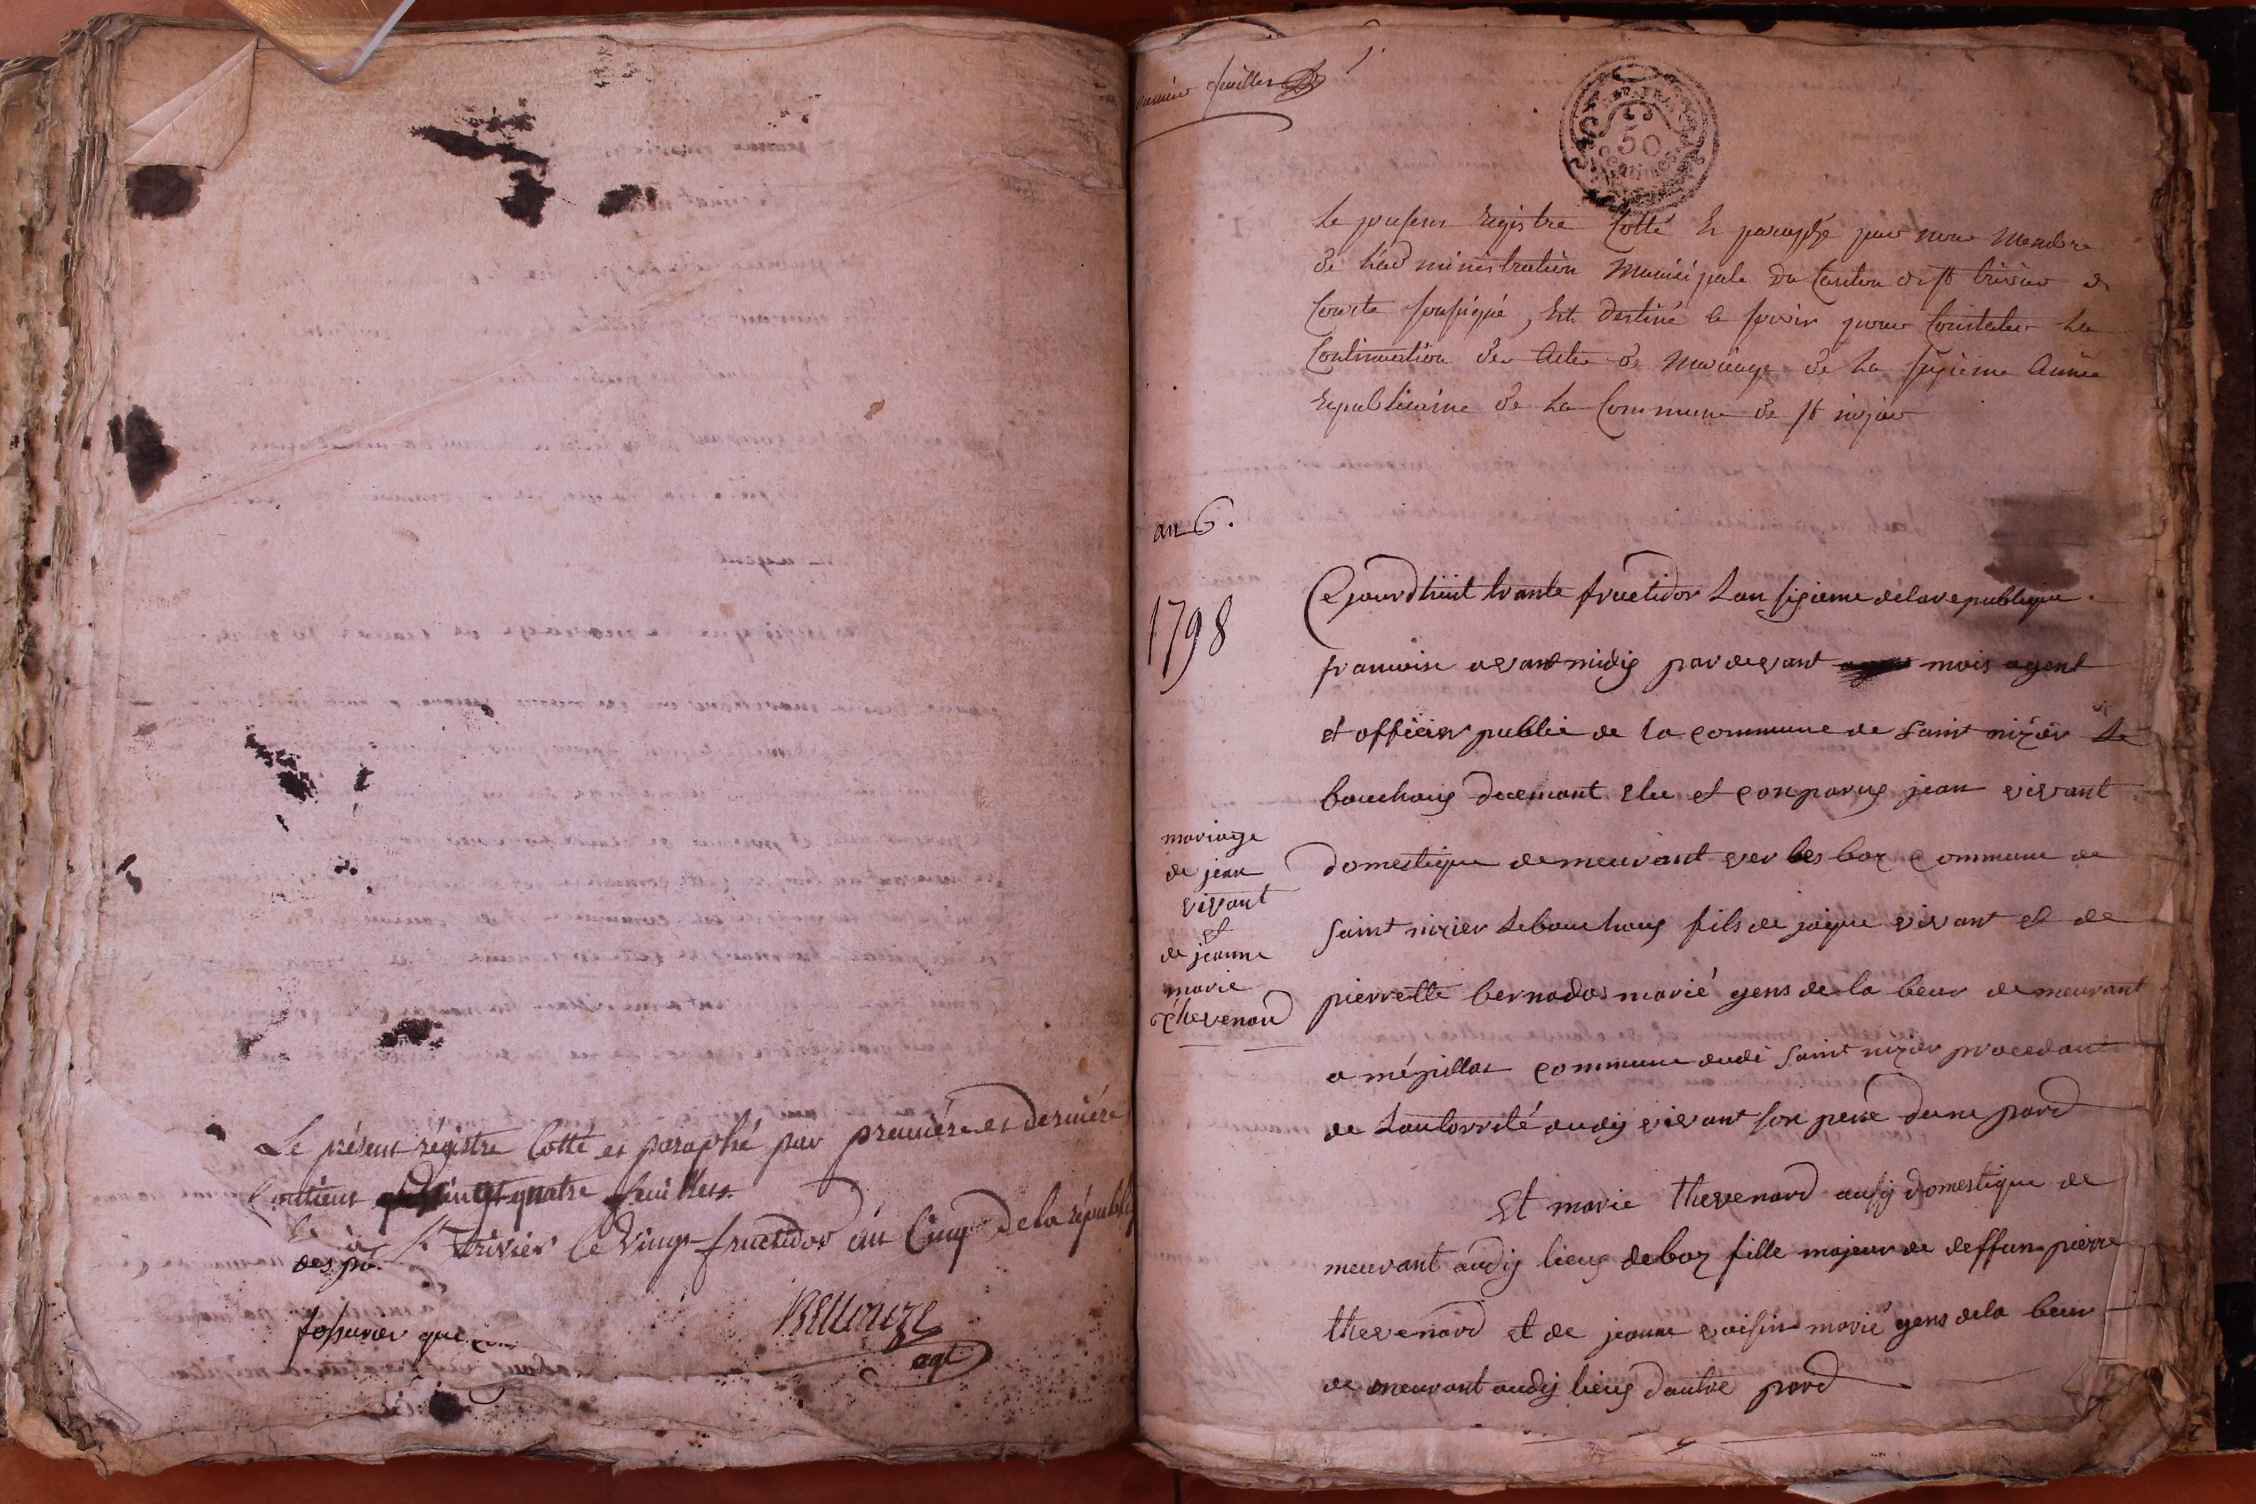 Le présent régistre Cotté et paraphé par première et dernière
Contient vingt quatre feuillets
à St Trivier le vingt fructidor an Cinq de la républ
agt
feuillet
1
REP. FRA
50
CENTIMES
Le presens registre Cotté Et paraphé par nous Membre
de L'administration Municipale du Canton de st trivier de
Courte soussigné, Est destiné a servir pour Constater La
Continuation des Actes de Mariage de La sixieme Année
Republicaine de La Commune de st nizier
an 6.
1798
mariage
de jean
vivant
et
de jeanne
marie
thevenard
Cejourdhuit trante fructidor Lan sixieme delarepublique
francoise avant midis pardevant mois agent
et officier public de la commune de saint nizier Le
bouchous ducemant elu et conparus jean vivant
domestique demeurant ver les boz commune de
saint nizier Lebouchous fils de jaque vivant et de
pierrette bernados marié gens de la beur demeurant
a mépillat commune dudi saint nizier procedant
de Lautorrité dudis vivant son pere dune pard
Et marie thevenard aussy domestique de
meurant audis lieus deboz fille majeur de deffun pierre
thevenard et de jeanne voisin marié gens dela beur
demeurant audis lieus dautre pard